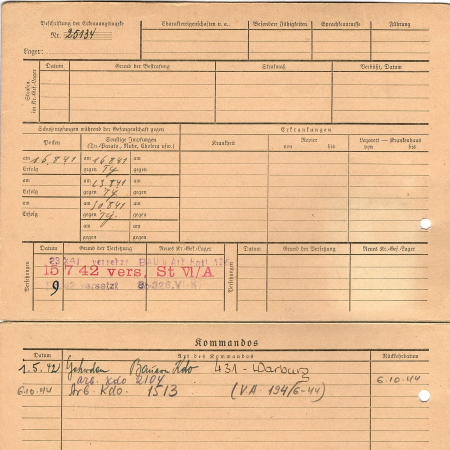 Beschriftung der Erkennungsmarke
Nr. 25134
Lager:
Charaktereigenschaften u. a.
Besondere Fähigkeiten
Sprachkenntnisse
Führung
Strafen im Kr.-Gef.-Lager
Datum
Grund der Bestrafung
Strafmaß
Verbüßt, Datum
Schutzimpfungen während der Gefangenschaft gegen
Erkrankungen
Pocken
Sonstige Impfungen
(Ty.-Paraty., Ruhr, Cholera usw.)
Krankheit
Revier
von bis
Lazarett — Krankenhaus
von bis
am 1 6.8.41 am 1 6 8 41 am
Erfolg gegen Ty. gegen
am am 23.8 41 am
Erfolg gegen Ty. gegen
am am 30 8 41 am
Erfolg gegen Ty. gegen
am am
gegen gegen
Versetzungen
Datum
Grund der Versetzung
Neues Kr.-Gef.-Lager
Versetzungen
Datum
Grund der Versetzung
Neues Kr.-Gef.-Lager
versetzt BAU u Arb
15 7 42 vers. St VI/A
9
42 versetzt
Kommandos
Datum
Art des Kommandos
Rückkehrdatum
1.5.42 Kdo 431 - Warburg
arb. Kdo 2104 6.10.44
6.10.44 Arb. Kdo. 1513 (V.A. 194/6-44)